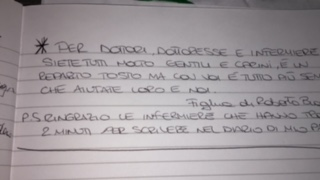 * PER DOTTORI, DOTTORESSE E INFERMIERE
SIETE TUTTI MOLTO GENTILI E CARINI, È UN
REPARTO TOSTO MA CON VOI È TUTTO PIÙ SEM
CHE AIUTATE LORO E NOI.
Figlia di Roberto
P.S RINGRAZIO LE INFERMIERE CHE HANNO
2 MINUTI PER SCRIVERE NEL DIARIO DI MIO